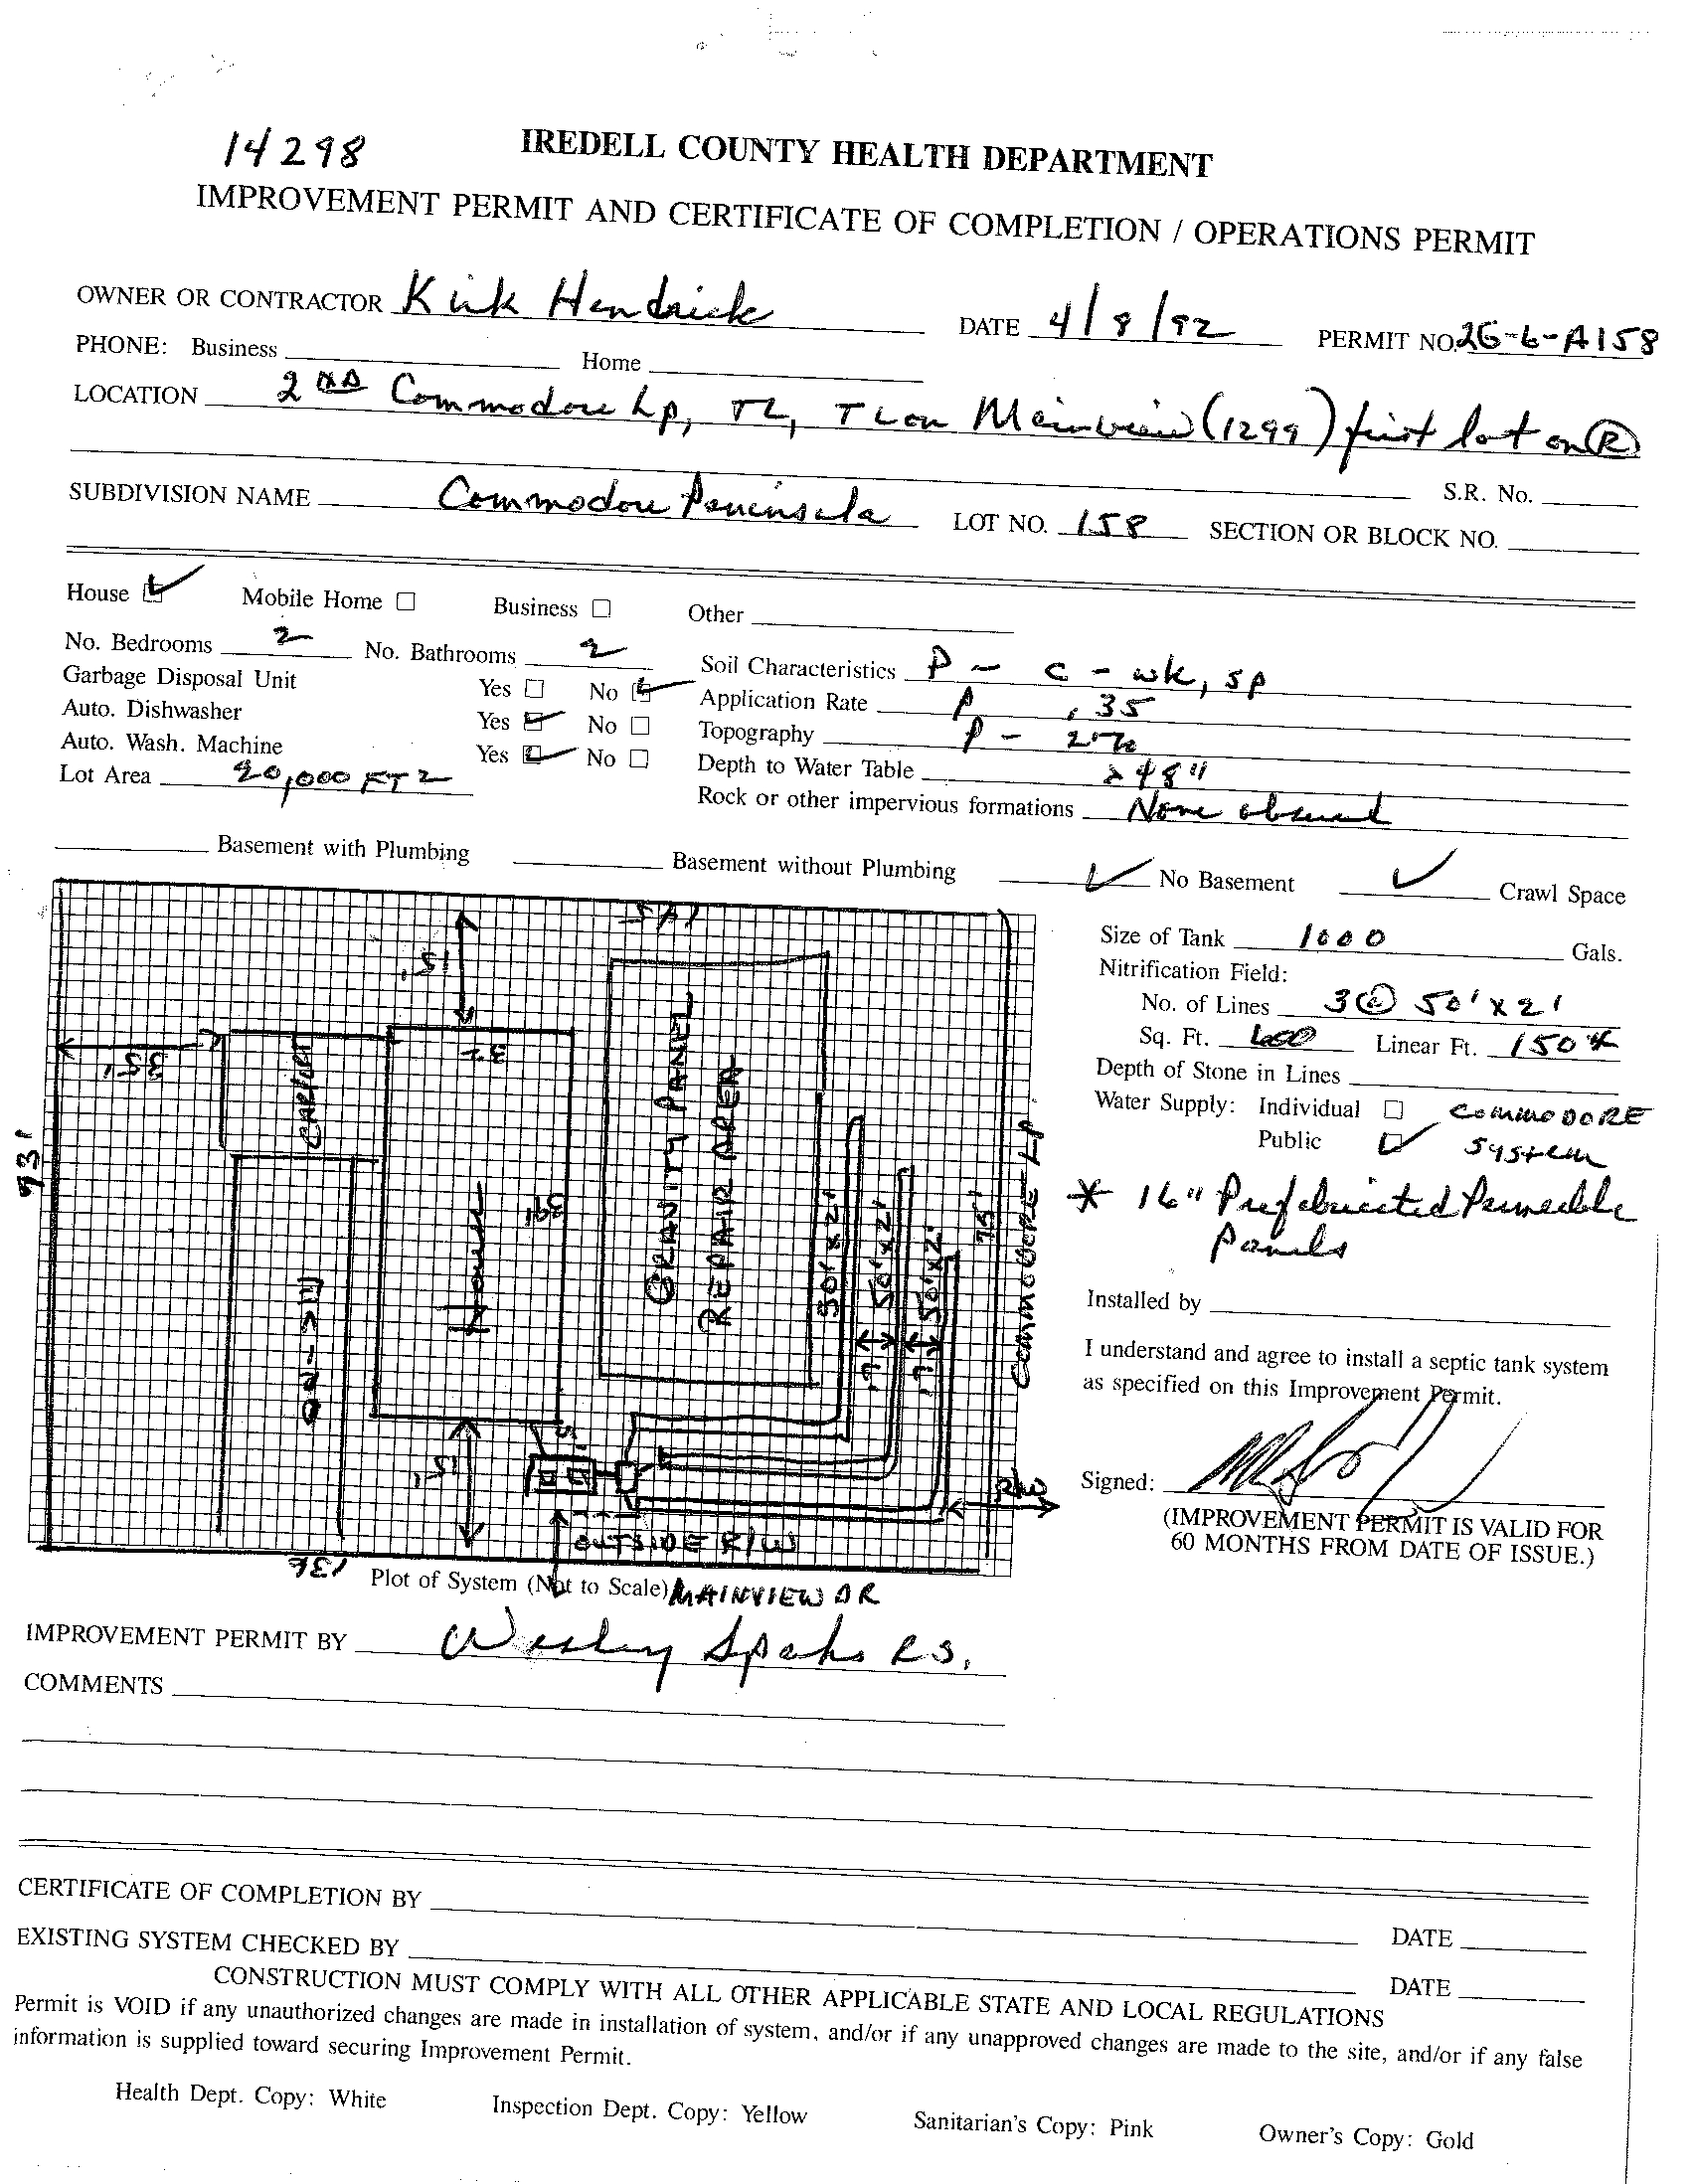 14298
IREDELL COUNTY HEALTH DEPARTMENT
IMPROVEMENT PERMIT AND CERTIFICATE OF COMPLETION / OPERATIONS PERMIT
OWNER OR CONTRACTOR Kirk Hendrick DATE 4/8/92 PERMIT NO. 2G-6-A158
PHONE: Business Home
LOCATION 2nd Commodore Lp, TL, TL on Mainview (1299) first lot on R
S.R. No.
SUBDIVISION NAME Commodore Peninsula LOT NO. 158 SECTION OR BLOCK NO.
House ✓ Mobile Home □ Business □ Other
No. Bedrooms 2 No. Bathrooms 2 Soil Characteristics P - C - wk, sp
Garbage Disposal Unit Yes □ No ✓ Application Rate P .35
Auto. Dishwasher Yes ✓ No □ Topography P - 2%
Auto. Wash. Machine Yes ✓ No □ Depth to Water Table > 48"
Lot Area 20,000 FT2 Rock or other impervious formations None observed
Basement with Plumbing Basement without Plumbing ✓ No Basement ✓ Crawl Space
Size of Tank 1000 Gals.
Nitrification Field:
No. of Lines 3 @ 50' X 2'
Sq. Ft. 600 Linear Ft. 150 *
Depth of Stone in Lines
Water Supply: Individual □ COMMODORE
Public ✓ System
* 16" Prefabricated Permeable
Panels
Installed by
I understand and agree to install a septic tank system
as specified on this Improvement Permit.
Signed:
(IMPROVEMENT PERMIT IS VALID FOR
60 MONTHS FROM DATE OF ISSUE.)
15'
35'
32
CARPORT
93'
DRIVE
House
39'
GRAVITY PANEL
REPAIR AREA
50' X 2'
50' X 2'
50' X 2'
75'
COMMODORE LP.
9'
9'
15'
5'
R/W
OUTSIDE R/W
136'
Plot of System (Not to Scale) MAINVIEW DR
IMPROVEMENT PERMIT BY Wesley R.S.
COMMENTS
CERTIFICATE OF COMPLETION BY DATE
EXISTING SYSTEM CHECKED BY DATE
CONSTRUCTION MUST COMPLY WITH ALL OTHER APPLICABLE STATE AND LOCAL REGULATIONS
Permit is VOID if any unauthorized changes are made in installation of system, and/or if any unapproved changes are made to the site, and/or if any false
information is supplied toward securing Improvement Permit.
Health Dept. Copy: White Inspection Dept. Copy: Yellow Sanitarian's Copy: Pink Owner's Copy: Gold